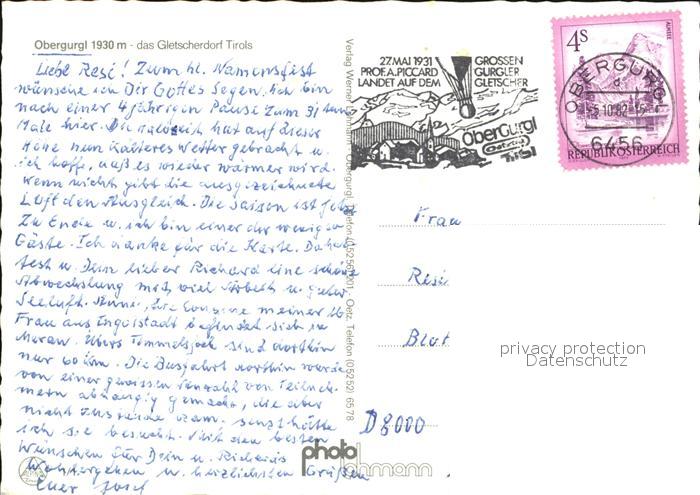 Obergurgl 1930 m - das Gletscherdorf Tirols
Liebe Resi! Zum hl. Namensfest
wünsche ich Dir Gottes Segen. Ich bin
nach einer 4jährigen Pause zum 31
Male hier. Die hat auf dieser
Höhe nun kälteres Wetter gebracht u.
ich hoffe, daß es wieder wärmer wird.
Wenn nicht gibt die ausgezeichnete
Luft den Ausgleich. Die Saison ist
zu Ende u. ich bin einer der wenigen
Gäste. Ich danke für die Karte. Du
u. Dein lieber Richard eine schöne
Abwechslung mit viel
Seeluft. Anni, die Cousine meiner
Frau aus Ingolstadt befindet sich in
Meran. Übers Timmelsjoch sind dorthin
nur 60 km. Die Busfahrt dorthin
von einer gewissen Anzahl von
abhängig gemacht, die aber
nicht sonst hätte
ich sie besucht. Mit den besten
Wünschen für Dein u. Richards
Wohlergehen u. herzlichsten Grüßen
Euer Josef
27. MAI 1931
PROF. A. PICCARD
LANDET AUF DEM
GROSSEN
GURGLER
GLETSCHER
Obergurgl
Oetztal
Tirol
4 S
REPUBLIK ÖSTERREICH
OBERGURGL
a
-5.10.82-15
6456
Frau
Resi
D 8000
privacy protection
Datenschutz
photo